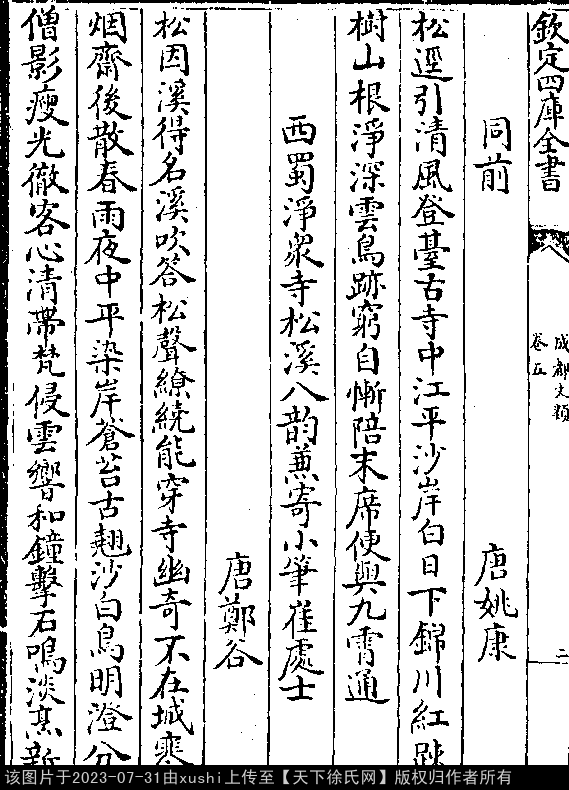 欽定四庫全書
成都文類
卷五
二
同前
唐姚康
松逕引清風登臺古寺中江平沙岸白日下錦川紅疎
樹山根淨深雲鳥跡窮自慚陪末席便與九霄通
西蜀淨衆寺松溪八韵蒹寄小筆崔處士
唐鄭谷
松因溪得名溪吹答松聲繚繞能穿寺幽奇不在城寒
烟齋後散春雨夜中平染岸蒼苔古翹沙白鳥明澄分
僧影瘦光徹客心清帶梵侵雲響和鐘擊石鳴淡烹新
该图片于2023-07-31由xushi上传至【天下徐氏网】版权归作者所有